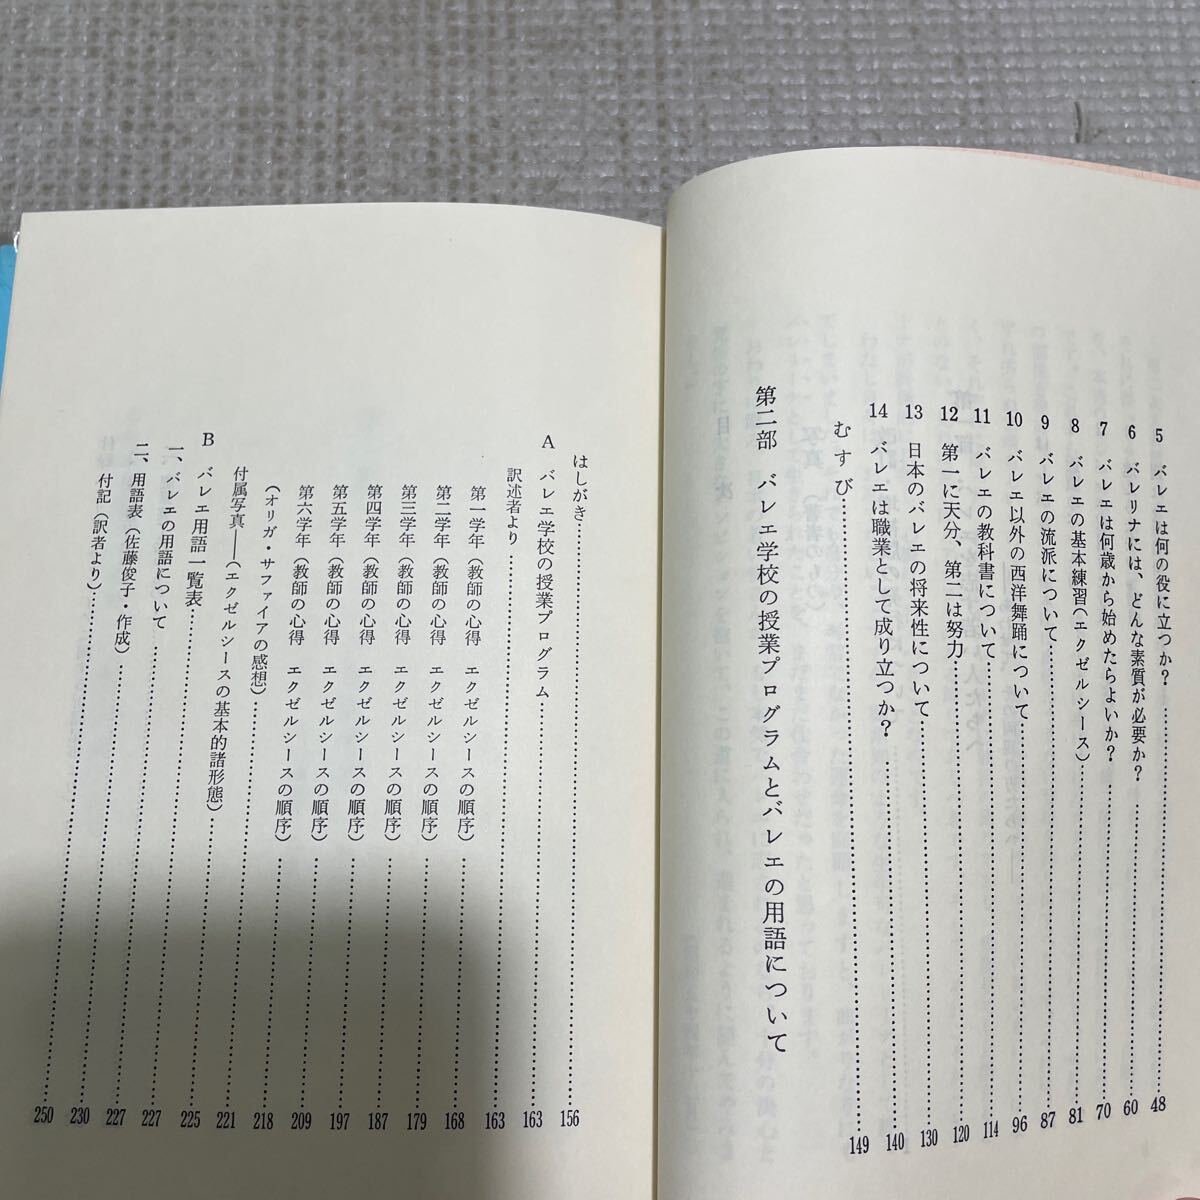 5 バレエは何の役に立つか？……48
6 バレリナには、どんな素質が必要か？……60
7 バレエは何歳から始めたらよいか？……70
8 バレエの基本練習（エクゼルシース）……81
9 バレエの流派について……87
10 バレエ以外の西洋舞踊について……96
11 バレエの教科書について……114
12 第一に天分、第二は努力……120
13 日本のバレエの将来性について……130
14 バレエは職業として成り立つか？……140
むすび……149
第二部 バレエ学校の授業プログラムとバレエの用語について
はしがき……156
A バレエ学校の授業プログラム……163
訳述者より……163
第一学年（教師の心得 エクゼルシースの順序）……168
第二学年（教師の心得 エクゼルシースの順序）……179
第三学年（教師の心得 エクゼルシースの順序）……187
第四学年（教師の心得 エクゼルシースの順序）……197
第五学年（教師の心得 エクゼルシースの順序）……209
第六学年（教師の心得 エクゼルシースの順序）……218
（オリガ・サファイアの感想）……221
付属写真——（エクゼルシースの基本的諸形態）……225
B バレエ用語一覧表……227
一、バレエの用語について……227
二、用語表（佐藤俊子・作成）……230
付記（訳者より）……250